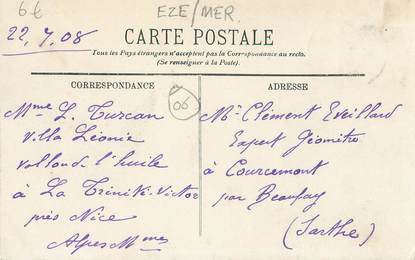 6€
EZE/MER.
22.7.08
CARTE POSTALE
Tous les Pays étrangers n'acceptent pas la Correspondance au recto.
(Se renseigner à la Poste).
CORRESPONDANCE
ADRESSE
06
Mme L. Turcan
Villa Léonie
vallon de l'huile
à La Trinité-Victor
près Nice
Alpes Mmes
Mr Clément Eveillard
Expert Géomètre
à Courcemont
par Beaufay
(Sarthe)